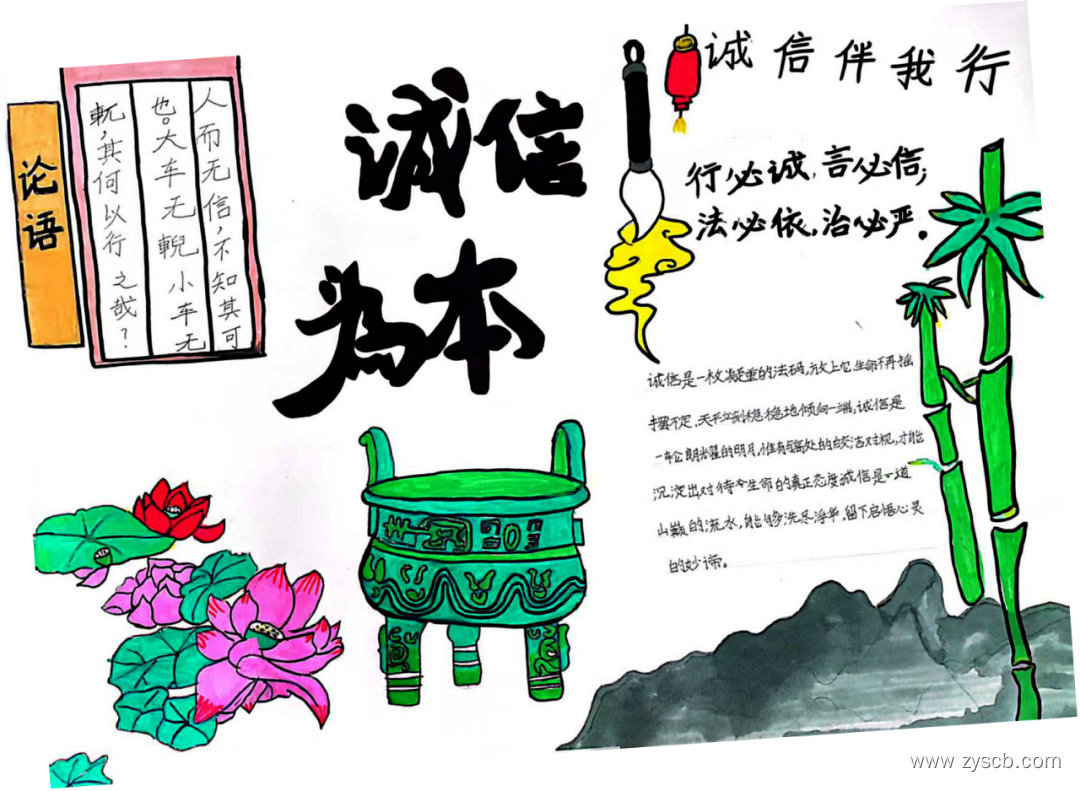 论语
人而无信,不知其可
也。大车无輗小车无
軏,其何以行之哉?
诚信
为本
诚信伴我行
行必诚,言必信;
法必依,治必严。
诚信是一枚凝重的法码,放上它,生命不再摇
摆不定,天平立刻稳稳地倾向一端,诚信是
一轮朗光耀的明月,惟有高处的皎洁对视,才能
沉淀出对待生命的真正态度诚信是一道
山巅的流水,能够洗尽浮华,留下启悟心灵
的妙谛。
www.zyscb.com